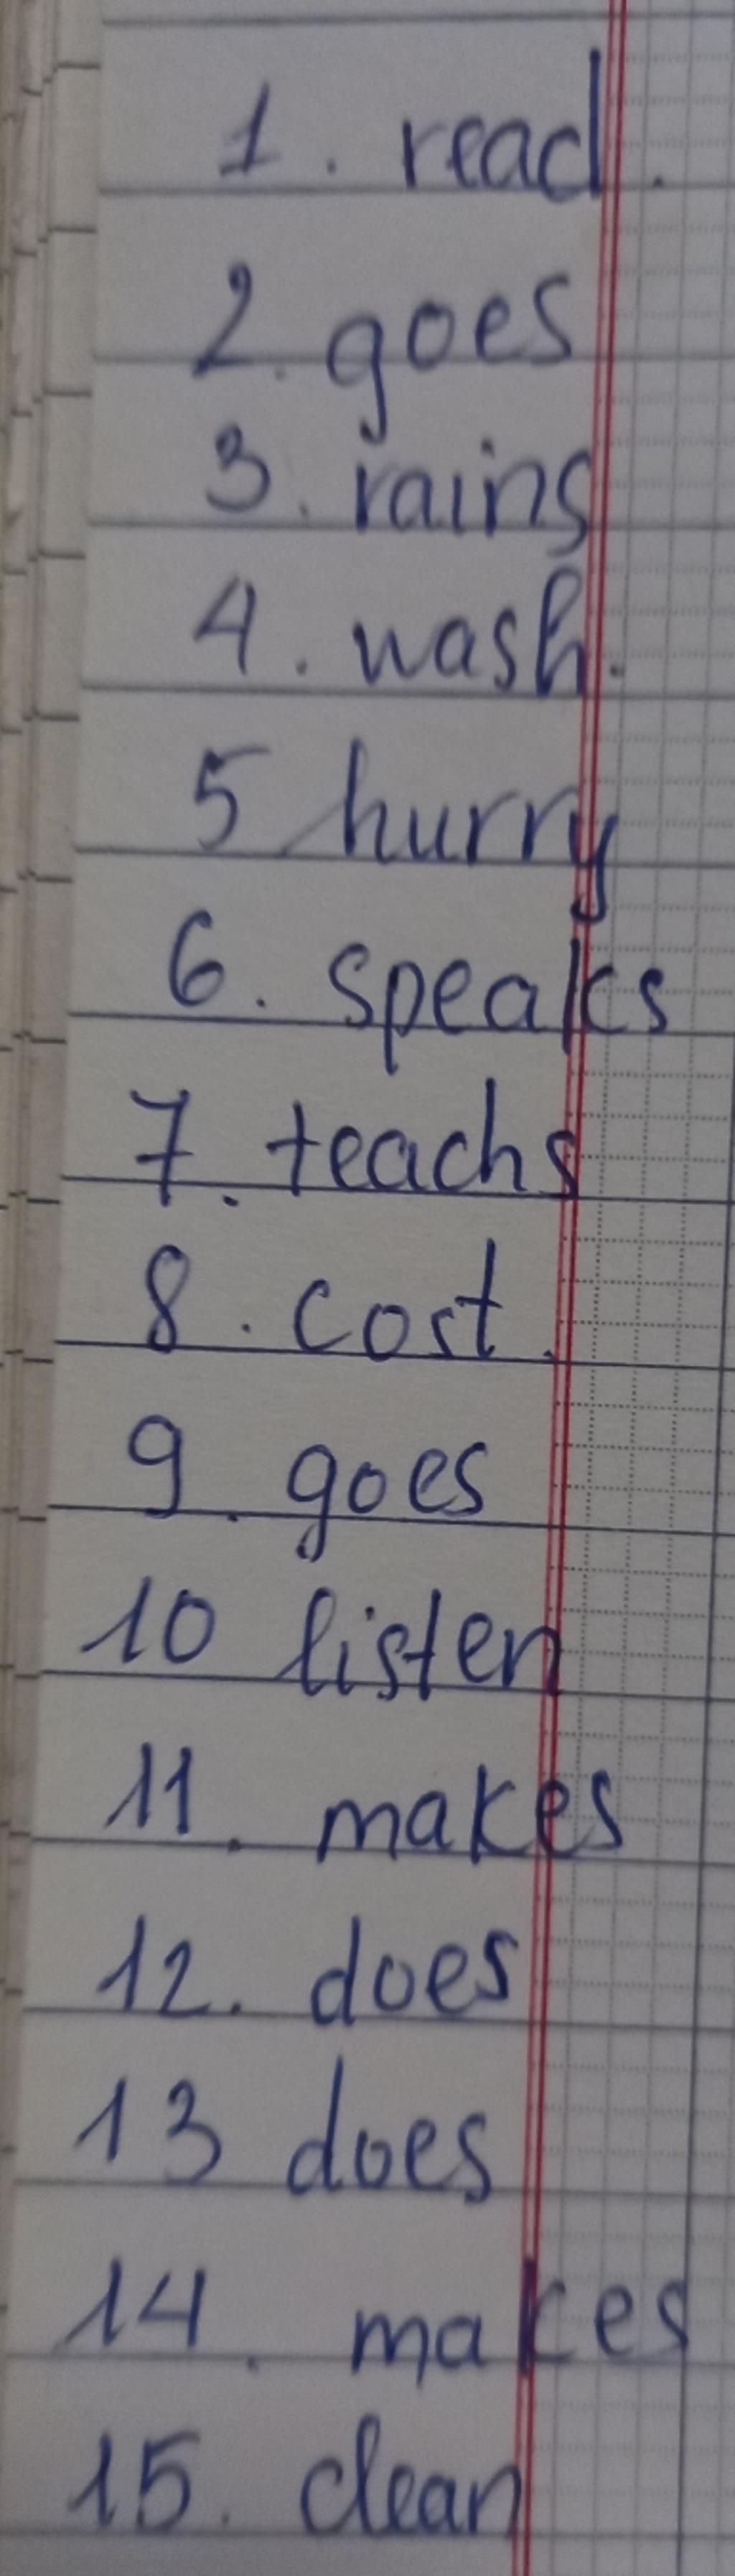 1. read.
2. goes
3. rains
4. wash.
5 hurry
6. speaks
7. teachs
8. cost.
9. goes
10 listen
11. makes
12. does
13 does
14. makes
15. clean